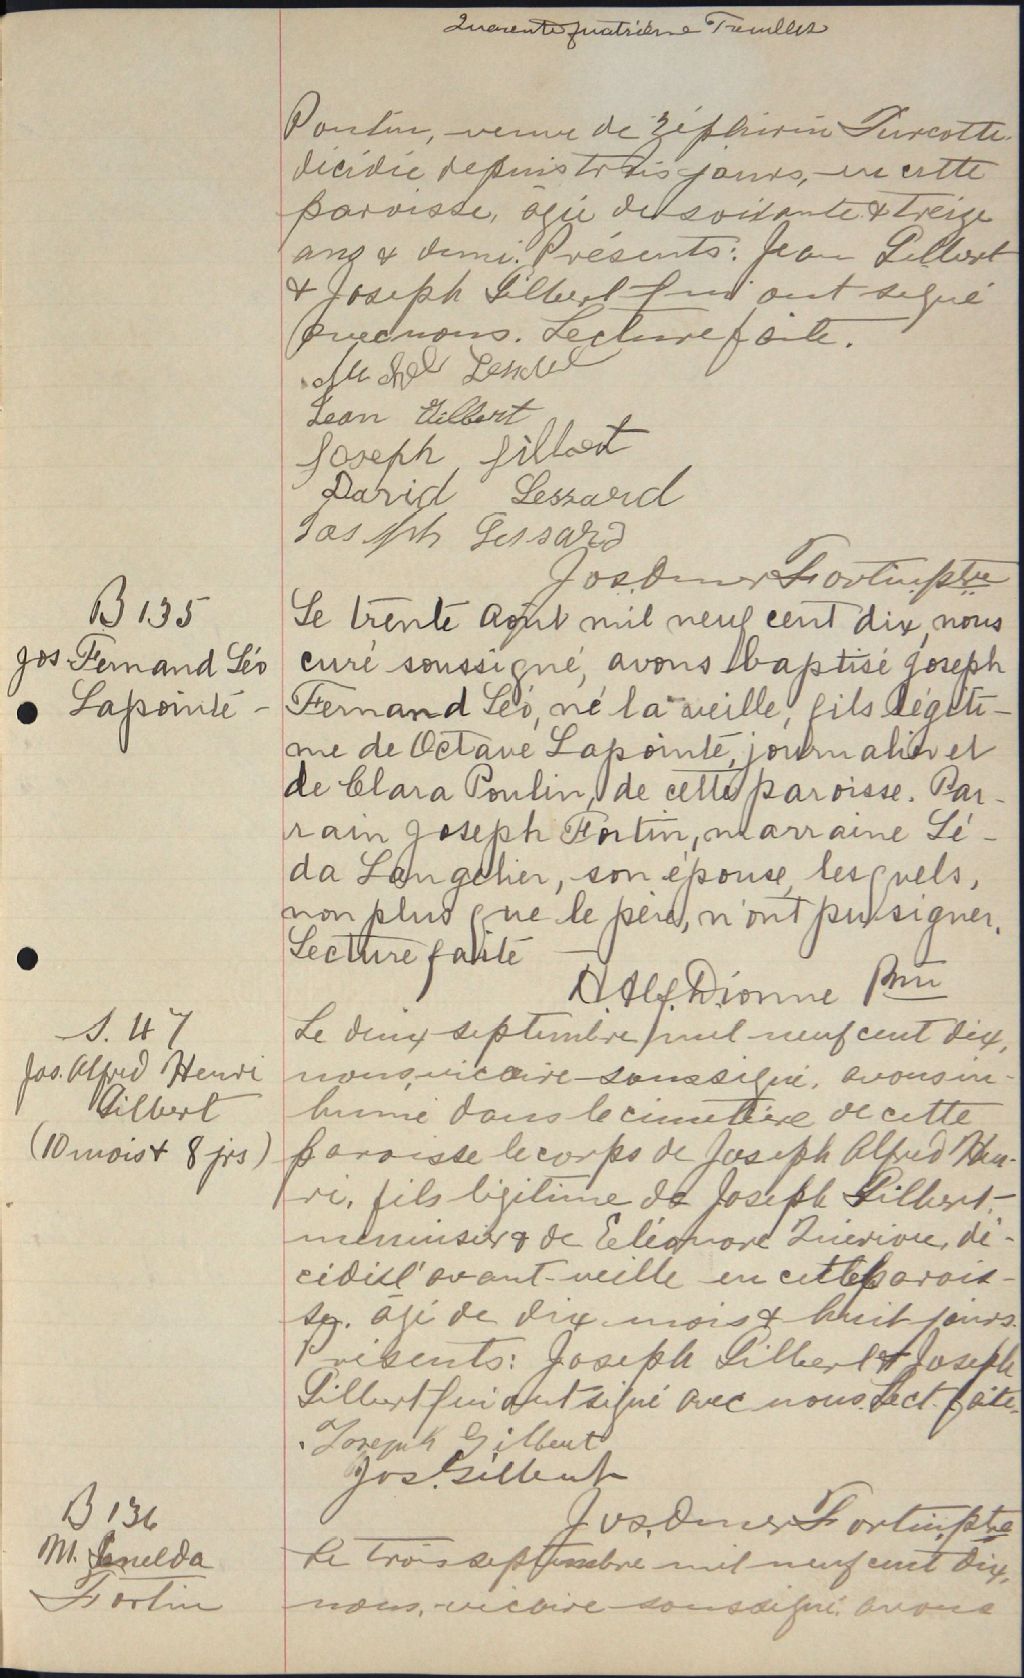 Quarante quatrième Feuillet
Poulin, veuve de Zéphirin Turcotte
décédée depuis trois jours, en cette
paroisse, âgée de soixante & treize
ans & demi. Présents: Jean Gilbert
& Joseph Gilbert qui ont signé
avec nous. Lecture faite.
Michel Lessard
Jean Gilbert
Joseph Gilbert
David Lessard
Joseph Lessard
Jos. Omer Fortin ptre
B 135
Jos Fernand Léo
Lapointe -
Le trente Août mil neuf cent dix, nous
curé soussigné, avons baptisé Joseph
Fernand Léo, né la veille, fils légiti-
me de Octave Lapointe, journalier et
de Clara Poulin, de cette paroisse. Par-
rain Joseph Fortin, marraine Lé-
da Langelier, son épouse, lesquels,
non plus que le père, n'ont pu signer.
Lecture faite —
H. Alf. Dionne Ptre
S. 47
Jos. Alfred Henri
Gilbert
(10 mois & 8 jrs)
Le deux septembre mil neuf cent dix,
nous, vicaire soussigné, avons in-
humé dans le cimetière de cette
paroisse le corps de Joseph Alfred Hen-
ri, fils légitime de Joseph Gilbert,
menuisier & de Eléonore, dé-
cédé l'avant-veille en cette parois-
se, âgé de dix mois & huit jours.
Présents: Joseph Gilbert & Joseph
Gilbert qui ont signé avec nous. Lect. faite.
Joseph Gilbert
Jos. Gilbert
Jos. Omer Fortin, ptre
B 136
M. Imelda
Fortin
Le trois septembre mil neuf cent dix,
nous, vicaire soussigné, avons